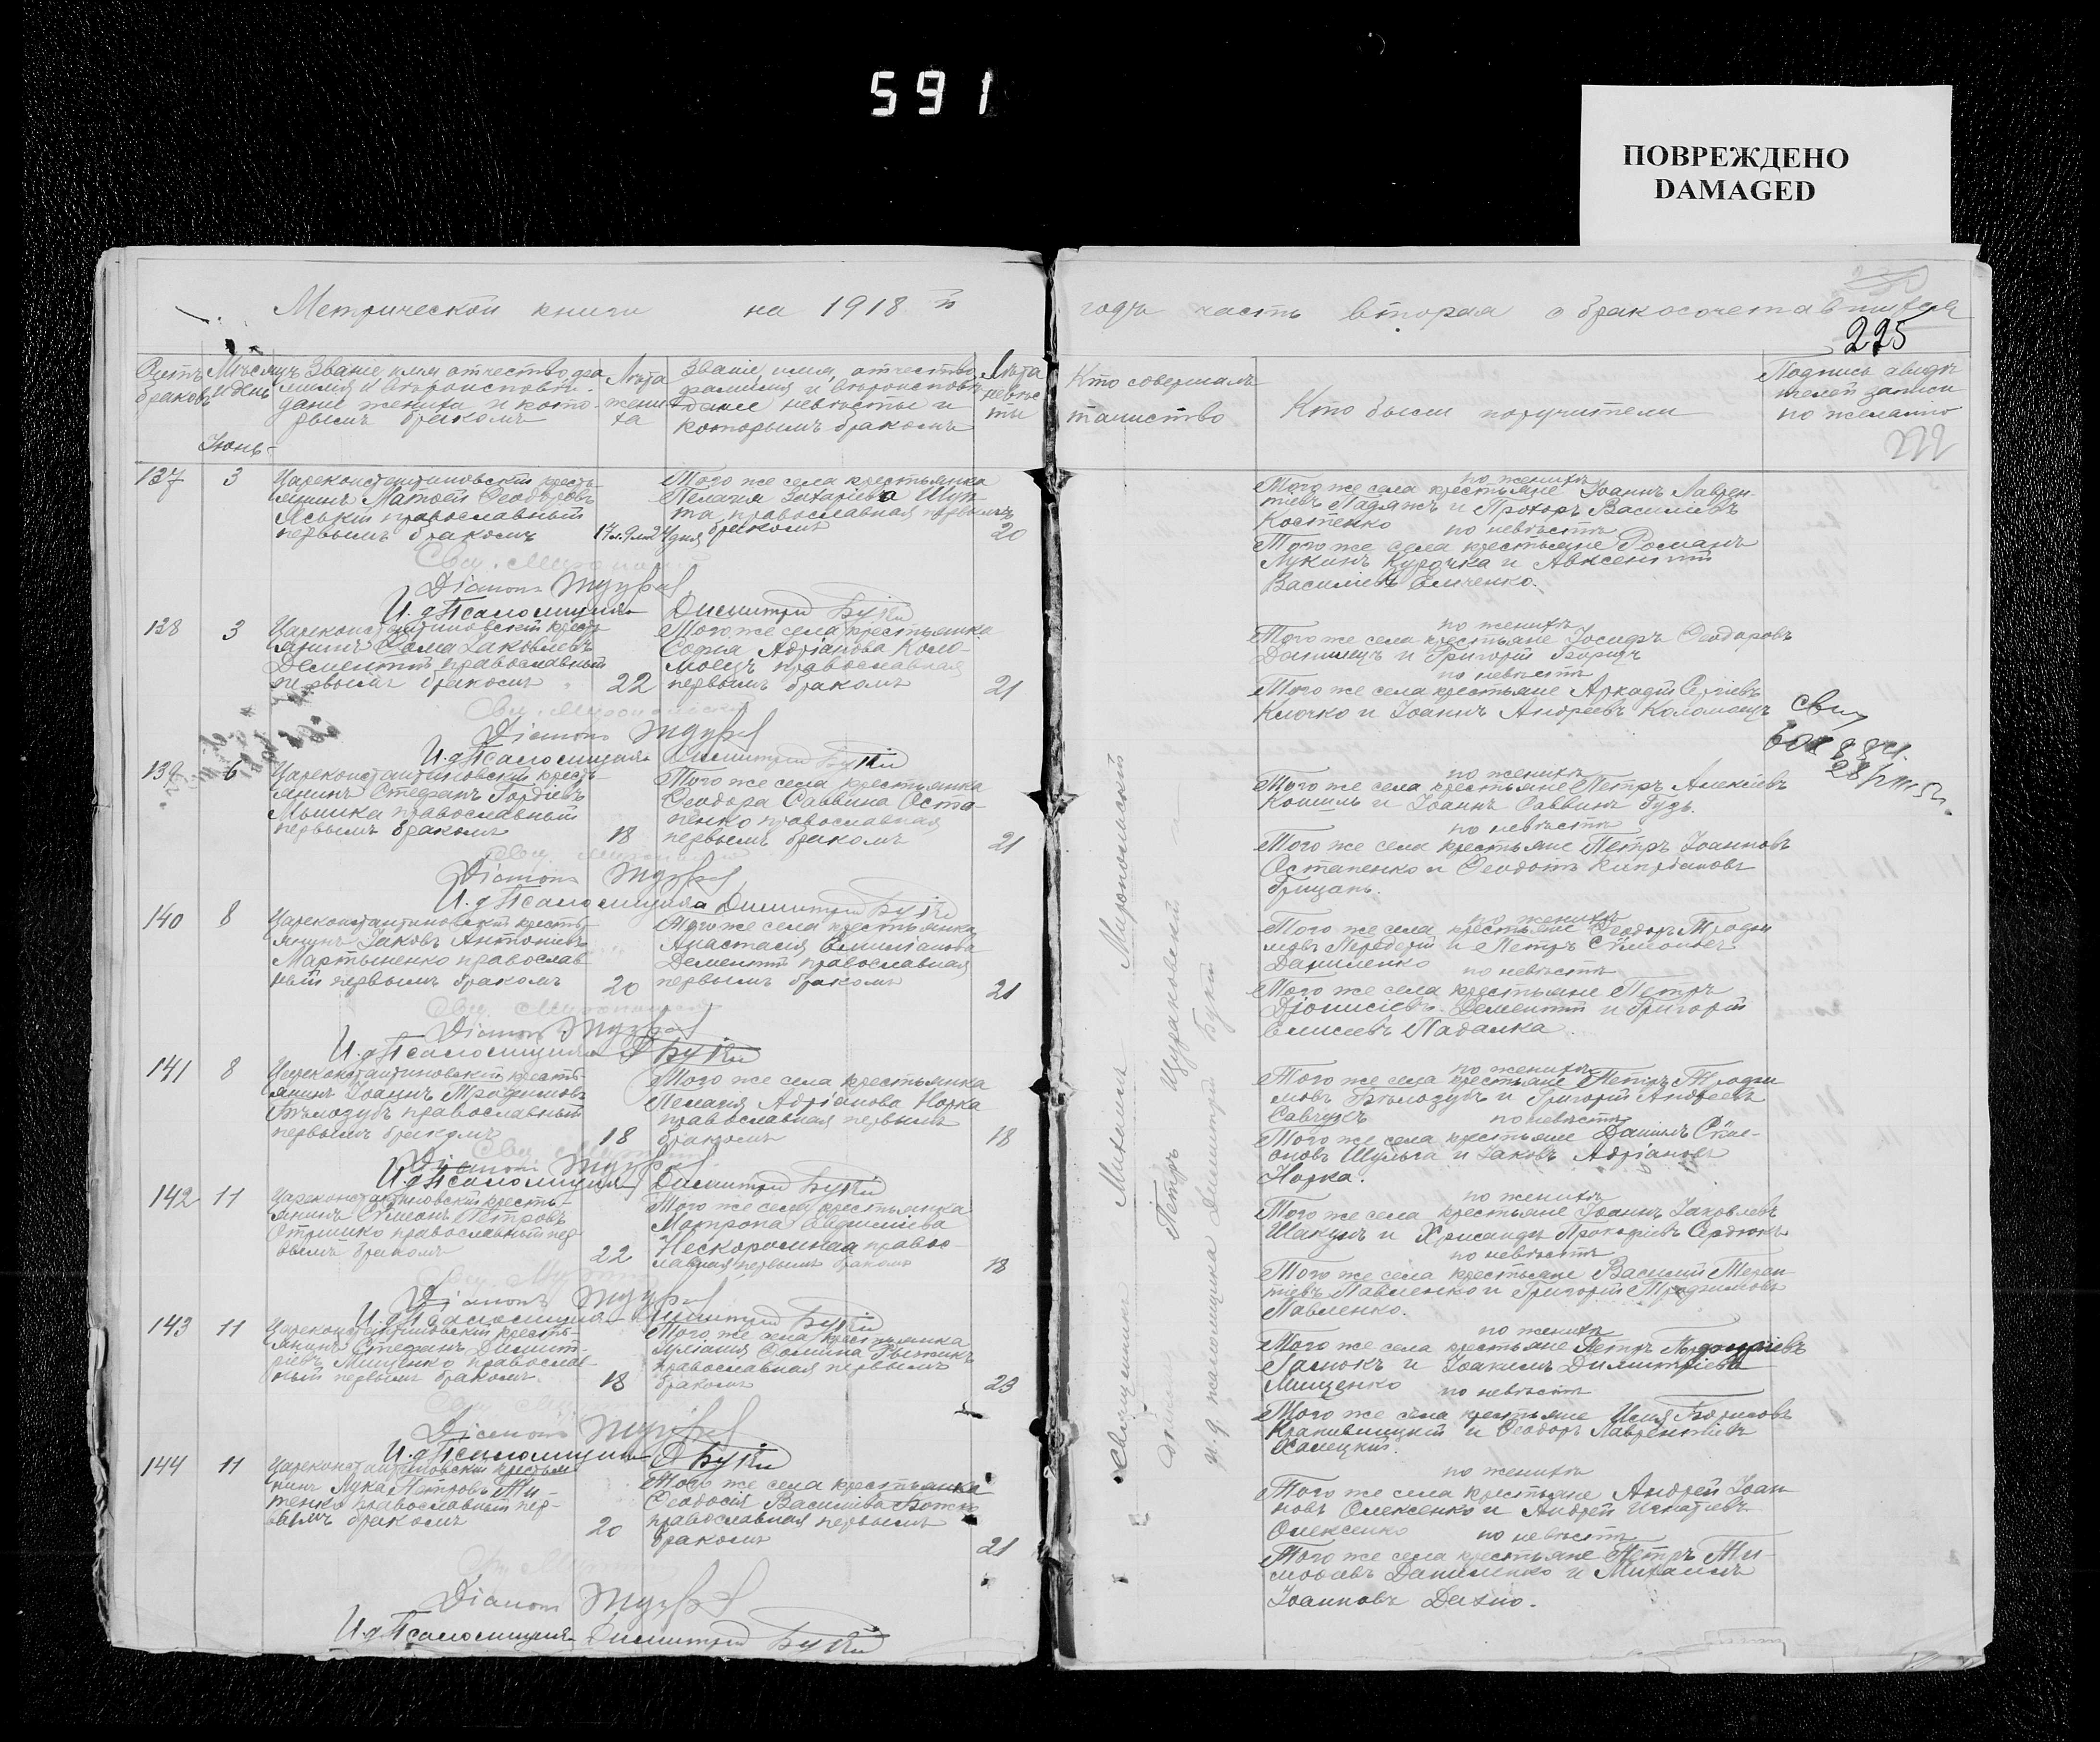 591
ПОВРЕЖДЕНО
DAMAGED
Метрической книги на 1918 й
годъ часть вторая о бракосочетавшихся
225
Счетъ браковъ
Мѣсяцъ и день
Званіе имя отчество фамилія и вѣроисповѣданіе жениха и которымъ бракомъ
Лѣта жениха
Званіе, имя, отчество, фамилія и вѣроисповѣданіе невѣсты и которымъ бракомъ
Лѣта невѣсты
Кто совершалъ таинство
Кто были поручители
Подпись свидѣтелей записи по желанію
222
Іюнь
137 3
Цареконстантиновскій кресть-
янинъ Матвей Ѳеодоровъ
Яській православный
первымъ бракомъ
17 л. 9 м 24 дня
Того же села крестьянка
Пелагія Захаріева Шул-
га православная первымъ
бракомъ
20
по женихѣ
Того же села крестьяне Іоаннъ Лаврен-
тіевъ Падляжъ и Прохоръ Василіевъ
Костенко
по невѣстѣ
Того же села крестьяне Романъ
Лукинъ Курочка и Авксентій
Василіевъ
Діаконъ
И. д. Псаломщика Димитрій Буткій
138 3
Цареконстантиновскій кресть-
янинъ Ѳома Іаковлевъ
Дементій православный
первымъ бракомъ
22
Того же села крестьянка
Софія Адріанова Коло-
моецъ православная
первымъ бракомъ
21
по женихѣ
Того же села крестьяне Іосифъ Ѳеодоровъ
Данилецъ и Григорій
по невѣстѣ
Того же села крестьяне Аркадій Сергіевъ
Клочко и Іоаннъ Андреевъ Коломоецъ
Діаконъ
И. д. Псаломщика Димитрій
139 6
Цареконстантиновскій кресть-
янинъ Стефанъ Гордіевъ
Мышка православный
первымъ бракомъ
18
Того же села крестьянка
Ѳеодора Саввина Оста-
пенко православная
первымъ бракомъ
21
по женихѣ
Того же села крестьяне Петръ Алексіевъ
Кошиль и Іоаннъ Саввинъ Гудъ.
по невѣстѣ
Того же села крестьяне Петръ Іоанновъ
Остапенко и Ѳеодотъ Кипріановъ
Грицань.
Діаконъ
И. д. Псаломщика Димитрій
140 8
Цареконстантиновскій кресть-
янинъ Іаковъ Антоніевъ
Мартыненко православ
ный первымъ бракомъ
20
Того же села крестьянка
Анастасія Емиліанова
Дементій православная
первымъ бракомъ
21
по женихѣ
Того же села крестьяне Ѳеодоръ Трофи
мовъ и Петръ Сѵмеоновъ
Даниленко
по невѣстѣ
Того же села крестьяне Петръ
Діонисіевъ Дементій и Григорій
Елисеевъ Падалка.
Діаконъ
И. д. Псаломщика
141 8
Цареконстантиновскій кресть-
янинъ Іоаннъ Трофимовъ
Бѣлозубъ православный
первымъ бракомъ
18
Того же села крестьянка
Пелагія Адріанова Норка
православная первымъ
бракомъ
18
по женихѣ
Того же села крестьяне Петръ Трофи
мовъ Бѣлозубъ и Григорій Андреевъ
Савчукъ
по невѣстѣ
Того же села крестьяне Даніилъ Сѵме-
оновъ Шульга и Іаковъ Адріановъ
Норка.
Діаконъ
И. д. Псаломщика Димитрій
142 11
Цареконстантиновскій кресть-
янинъ Сѵмеонъ Петровъ
православный пер
вымъ бракомъ
22
Того же села крестьянка
Матрона
Нескоромная правос-
лавная первымъ бракомъ
18
по женихѣ
Того же села крестьяне Іоаннъ Іаковлевъ
Шакунъ и Хрисанфъ Прокофіевъ Сердюкъ
по невѣстѣ
Того же села крестьяне Василій Терен-
тіевъ Павленко и Григорій Трофимовъ
Павленко.
Діаконъ
143 11
Цареконстантиновскій кресть-
янинъ Стефанъ Димит-
ріевъ Мищенко православ-
ный первымъ бракомъ.
18
Того же села крестьянка
Іуліанія Ѳомина Рыжикъ
православная первымъ
бракомъ
23
по женихѣ
Того же села крестьяне Петръ
и Іоакимъ Димитріевъ
Мищенко
по невѣстѣ
Того же села крестьяне Илія Борисовъ
Крапивницкій и Ѳеодоръ Лаврентіевъ
Діаконъ
И. д. Псаломщика
144 11
Цареконстантиновскій крестья
нинъ Лука Петровъ
православный пер-
вымъ бракомъ
20
Того же села крестьянка
Ѳеодосія Василіева Божко
православная первымъ
бракомъ
21
по женихѣ
Того же села крестьяне Андрей Іоан
новъ Олексенко и Андрей Игнатіевъ
Олексенко
по невѣстѣ
Того же села крестьяне Петръ Ти-
моѳеевъ Даниленко и Михаилъ
Іоанновъ
Діаконъ
И. д. Псаломщика Димитрій
Священникъ Михаилъ Миропольскій
Діаконъ Петръ
и. д. псаломщика Димитрій Буткій